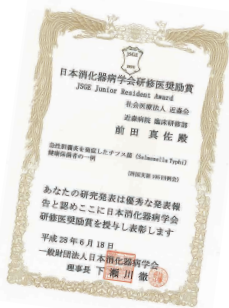 JSGE
日本消化器病学会研修医奨励賞
JSGE Junior Resident Award
社会医療法人 近森会
近森病院 臨床研修部
前田 真佐 殿
急性胆嚢炎を発症したチフス菌 (Salmonella Typhi)
健康保菌者の一例
(四国支部 105回例会)
あなたの研究発表は優秀な発表報
告と認めここに日本消化器病学会
研修医奨励賞を授与し表彰します
平成28年6月18日
一般財団法人日本消化器病学会
理事長 下瀬川 徹